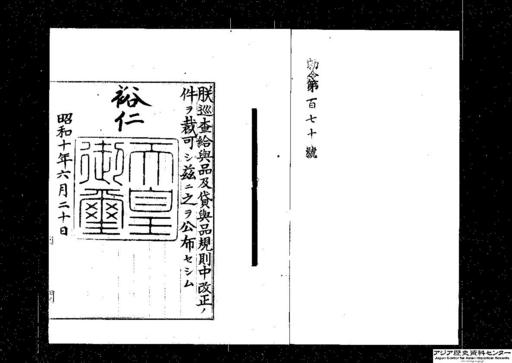 勅令第百七十號
朕巡査給與品及貸與品規則中改正ノ
件ヲ裁可シ茲ニ之ヲ公布セシム
裕仁
天皇
御璽
昭和十年六月二十日
アジア歴史資料センター
Japan Center for Asian Historical Records